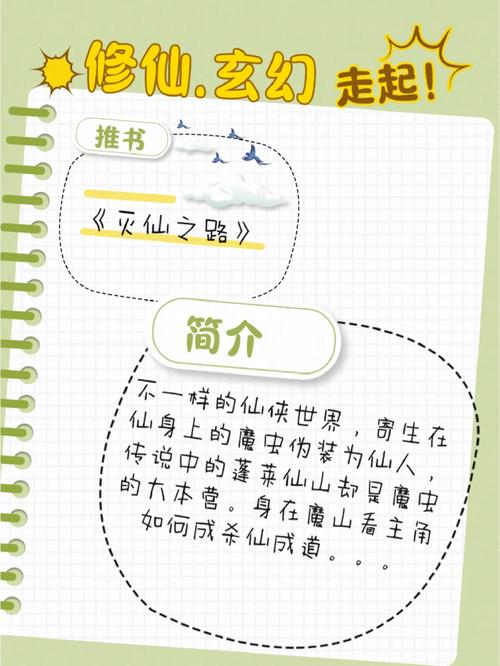 修仙.玄幻 走起!
推书
《灭仙之路》
简介
不一样的仙侠世界，寄生在
仙身上的魔虫伪装为仙人，
传说中的蓬莱仙山却是魔虫
的大本营。身在魔山看主角
如何成杀仙成道。。。